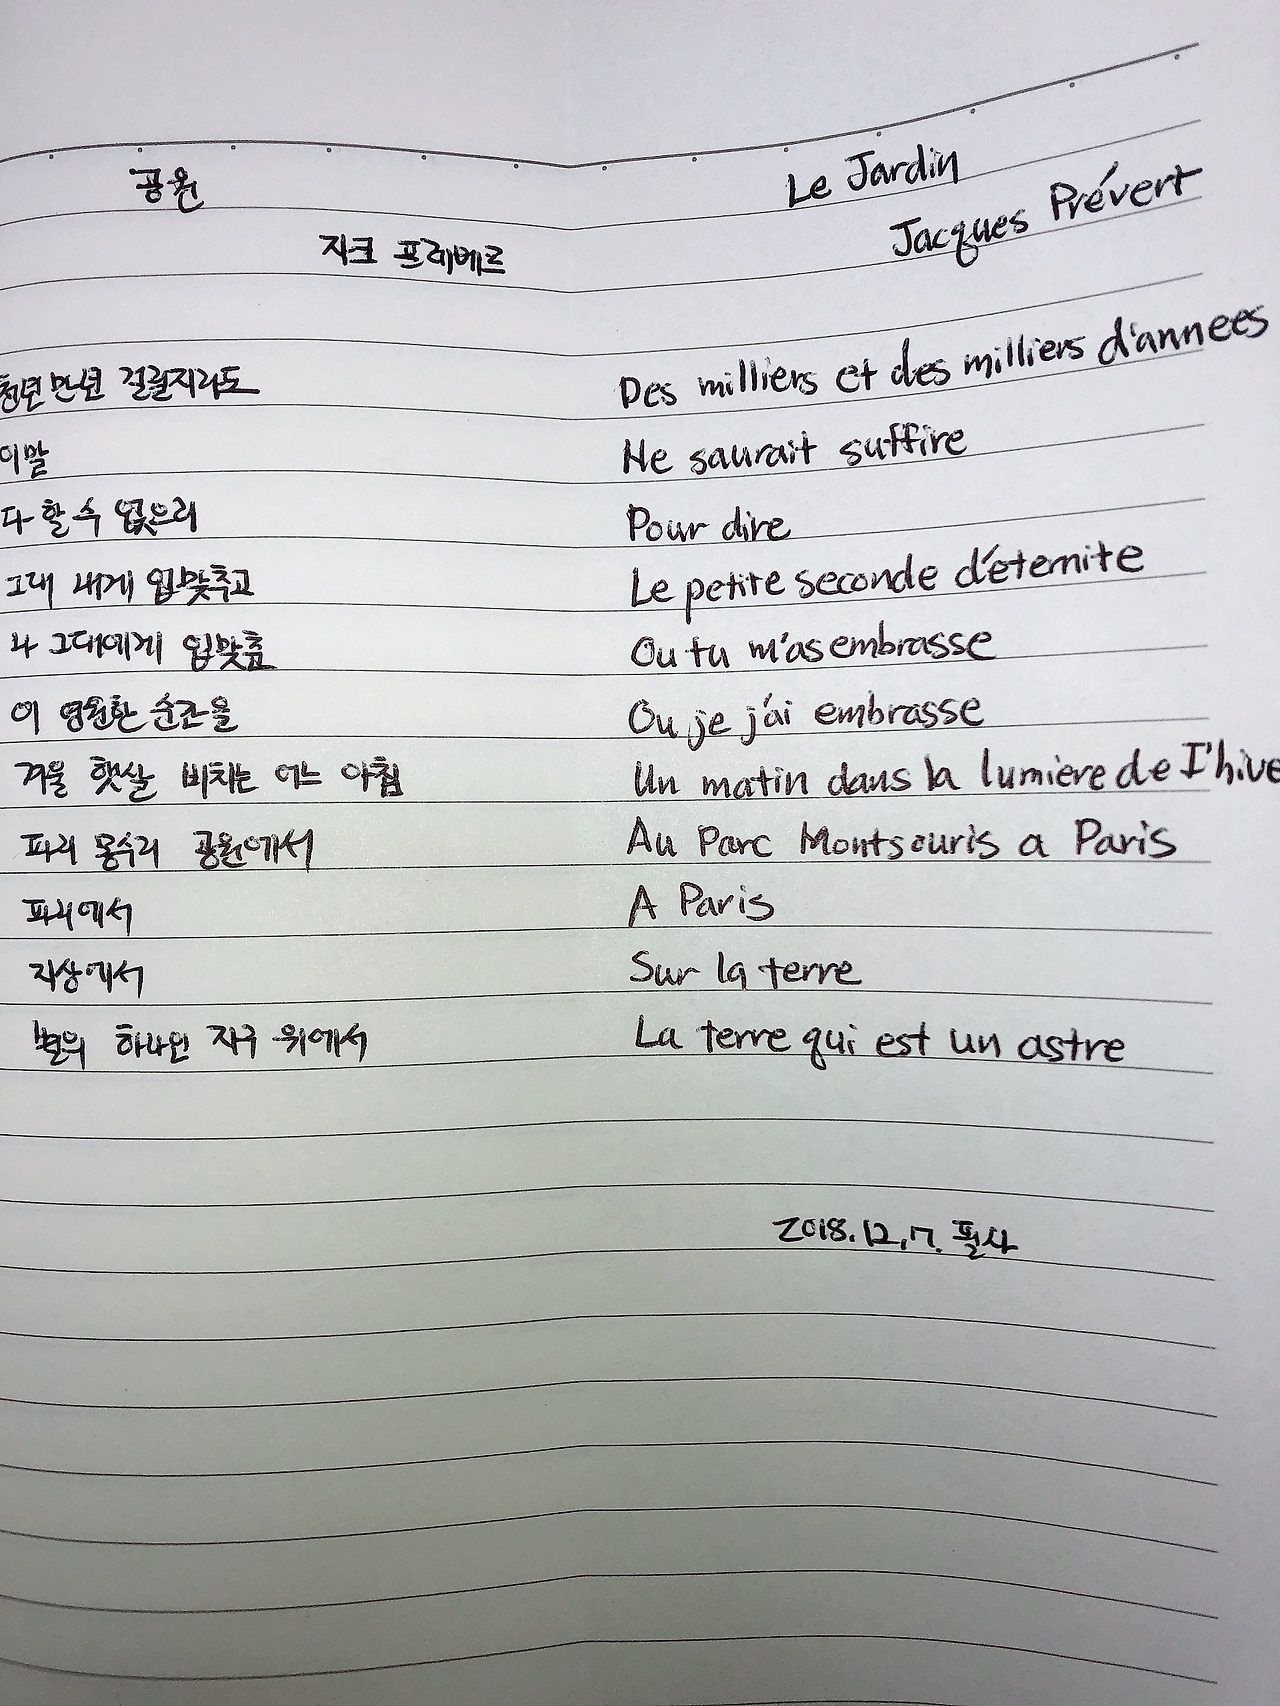 공원
자크 프레베르
천년만년 걸릴지라도
이말
다 할 수 없으리
그대 내게 입맞추고
나 그대에게 입맞춤
이 영원한 순간을
겨울 햇살 비치는 어느 아침
파리 몽수리 공원에서
파리에서
지상에서
별의 하나인 지구 위에서
Le Jardin
Jacques Prévert
Des milliers et des milliers d'annees
Ne saurait suffire
Pour dire
Le petite seconde d'éternite
Ou tu m'as embrasse
Ou je j'ai embrasse
Un matin dans la lumiere de I'hive
Au Parc Montsouris a Paris
A Paris
Sur la terre
La terre qui est un astre
2018.12.7.필사